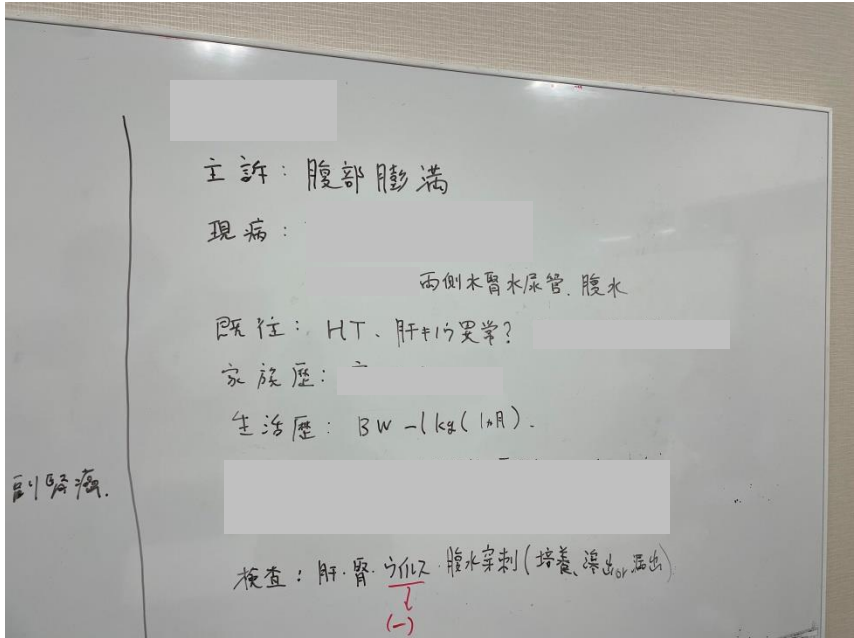 主訴：腹部膨満
現病：
両側水腎水尿管、腹水
既往：HT、肝キノウ異常？
家族歴：
生活歴：BW -1kg(1ヵ月).
副腎癌.
検査：肝・腎・ウイルス・腹水穿刺(培養、滲出or漏出)
(-)